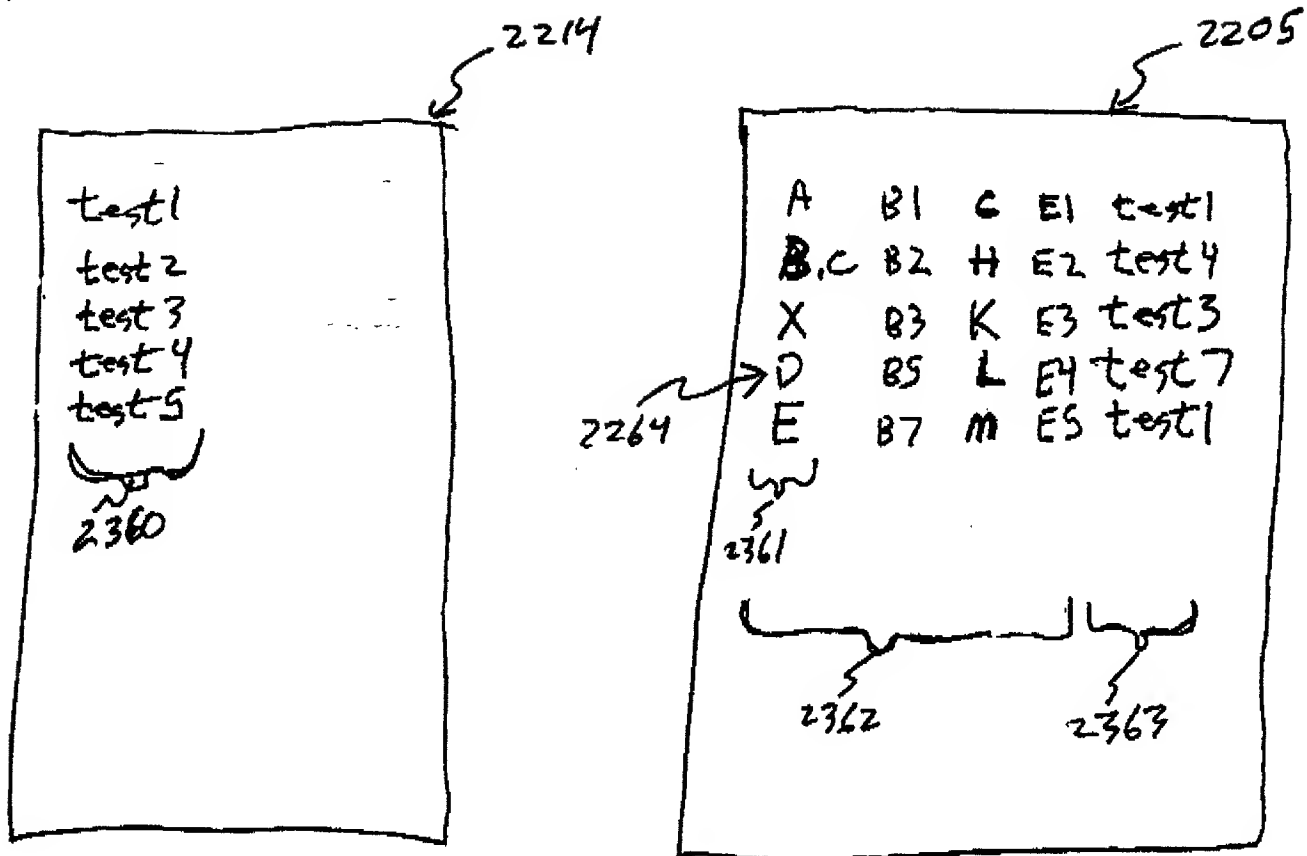 2214
test1
test2
test3
test4
test5
2360
2205
A B1 C E1 test1
B,C B2 H E2 test4
X B3 K E3 test3
D B5 L E4 test7
E B7 M E5 test1
2264
2361
2362
2363